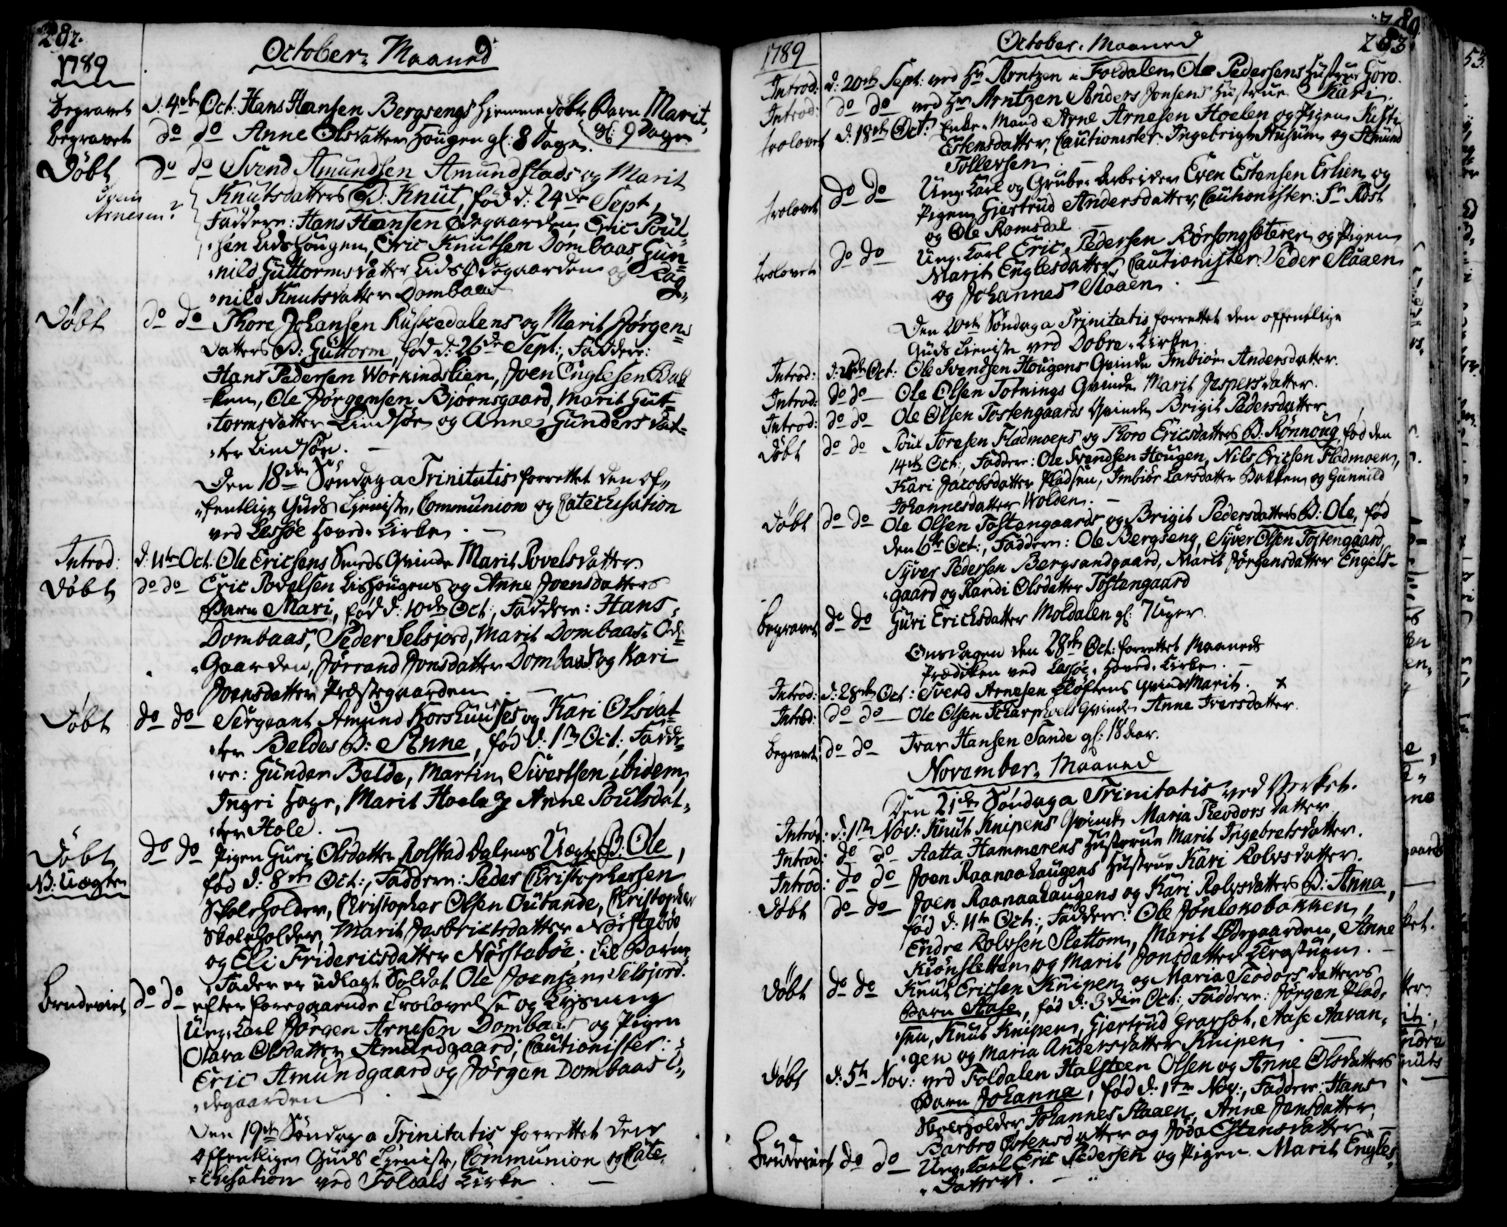 282.
1789
October Maaned
Begravet d: 4de Oct: Hans Hansen Bergsengs hjemmedøbte Barn Marit,
gl: 9 Dage
Begravet do do Anne Olsdatter Haugen gl: 8 Dage.
Døbt do do Svend Amundsen Amundstads og Marit
Svein
Arnesen?
Knutsdatters B: Knut, fød d: 24de Sept,
Faddere: Hans Hansen Ødegaarden, Eric Poul-
sen Lidshougen, Eric Knutsen Dombaas, Gun-
nild Guttormsdatter Lids Ødegaarden og Rag-
nild Knutsdatter Dombaas
Døbt do do Thore Johansen Ruskedalens og Marit Jørgens-
datters B: Guttorm, fød d: 26de Sept:, Faddere:
Hans Pedersen Workindslien, Joen Englesen Bak-
ken, Ole Jørgensen Bjørnsgaard, Marit Gut-
tormsdatter Lindsøe og Anne Gundersdat-
ter Lindsøe.
Den 18de Søndag a Trinitatis forrettet den of-
fentlige Guds Tjeneste, Communion og Catechisation
ved Lessøe Hoved-Kirke.
Introd: d: 11te Oct. Ole Ericsens Smeds Qvinde Marit Povelsdatter
Døbt do do Eric Povelsen Lidshougens og Anne Joensdatters
Barn Mari, fød d: 10de Oct:, Faddere: Hans
Dombaas, Peder Selsjord, Marit Dombaas-Øde-
Gaarden, Jørrand Jonsdatter Dombaas og Kari
Joensdatter Præstegaarden
Døbt do do Sergeant Amund Korshuus's og Kari Olsdat-
ter Beldes B: Anne, fød d: 1te Oct: Fadde-
re: Gunder Belde, Martin Sivertsen ibidem,
Ingri Hage, Marit Hoelag Anne Poulsdat-
ter Hole.
Døbt do do Pigen Guri Olsdatter Rolstaddalens Uægte B: Ole,
NB: Uægte
fød d: 8de Oct:, Faddere: Peder Christophersen
Skoleholder, Christopher Olsen Ourande, Christopher
Skoleholder, Marit Jacobsdatter Nørsteboe
og Eli Fridericsdatter Nørsteboe; til Barne-
Fader er udlagt Soldat Ole Joensen Selsjord.
Brudeviet do do efter foregaaende Trolovelse og Lysning
Ung-Karl Jørgen Arnesen Dombaas og Pigen
Olava Olsdatter Amundgaard; Cautionister:
Eric Amundgaard og Jørgen Dombaas Ø-
degaarden
Den 19de Søndag a Trinitatis forrettet den
offentlige Guds Tjeneste, Communion og Cate-
chisation ved Foldals Kirke
1789
October Maaned
283.
Introd: d: 20de Sept: ved Hr Arntzen i Foldalen Ole Pedersens Hustrue Goro.
Introd: do do ved Hr Arntzen Anders Jonsens Hustrue Kari
trolovet d: 18de Oct: Enke-Mand Arne Arnesen Hoelen og Pigen Kisti
Estensdatter, Cautionister: Ingebrigt Husum og Amund
Tollefsen.
trolovet do do Ung-Karl og Grube-Arbeider Even Estensen Erlien og
Pigen Giertrud Andersdatter, Cautionister: Sr Røst
og Ole Romsdal
trolovet do do Ung-Karl Eric Pedersen Rørsongsæteren og Pigen
Marit Englesdatter, Cautionister: Peder Staaen
og Johannes Staaen.
Den 20de Søndag a Trinitatis forrettet den offentlige
Guds Tjeneste ved Dobre-Kirke.
Introd: d: 25de Oct: Ole Svendsen Hougens Qvinde Imbiør Andersdatter.
Introd: do do Ole Olsen Totnings Qvinde Marit Jespersdatter.
Introd: do do Ole Olsen Tostengaards Qvinde Brigit Pedersdatter
Døbt do do Poul Toresen Fladmoens og Thoro Ericsdatters B: Rønnoug, fød den
14de Oct:, Faddere: Ole Svendsen Hougen, Nils Ericsen Fladmoen,
Kari Jacobsdatter Pladsen, Imbiør Larsdatter Bakken og Gunnild
Johannesdatter Wolden.
Døbt do do Ole Olsen Tostengaards og Brigit Pedersdatters B: Ole, fød
den 6te Oct:, Faddere: Ole Bergseng, Syver Olsen Tostengaard,
Syver Pedersen Bergsandgaard, Marit Jørgensdatter Engels-
gaard og Randi Olsdatter Tostengaard
begravet do do Guri Ericksdatter Moldalen gl: 7 Uger.
Onsdagen den 28de Oct: forrettet Maaneds
Prædiken ved Lessøe-Hoved-Kirke.
Introd: d: 28de Oct: Svend Arnesen Kløftens Qvinde Marit. x
Introd: do do Ole Olsen Qvinde Anne Iversdatter.
begravet do do Ivar Hansen Sande gl: 18 Aar.
November Maaned
Den 21de Søndag a Trinitatis ved Verket.
Introd: d: 1te Nov: Knut Knipens Qvinde Maria Theodorsdatter
Introd: do do Aatta Hammerens Hustrue Marit Ingebretsdatter.
Introd: do do Joen Raanaahaugens Hustrue Kari Rolvsdatter.
Døbt do do Joen Raanaahaugens og Kari Rolvsdatters B: Anna,
fød d: 11te Oct:, Faddere: Ole Jønlokobakken,
Endre Rolvsen Slettom, Marit Ødegaarden, Anne
Kiønsletten og Marit Jonsdatter Kragstuen.
Døbt do do Knut Ericsen Knipen og Maria Teodorsdatters
Barn Aase, fød d: 3die Oct: Faddere: Jørgen Plad-
sen, Knut Knipen, Giertrud Gravset, Aase Aavan-
gen og Maria Andersdatter Knipen
Døbt d: 5te Nov: ved Foldalen Halsteen Olsen og Anne Olsdatters
Barn Johanna, fød d: 1te Nov:, Faddere: Hans
Skoleholder, Johannes Staaen, Anne Jensdatter,
Barbro Østensdatter og Jøda Estensdatter
Brudeviet do do Ung-Karl Eric Pedersen og Pigen Marit Engles-
datter.